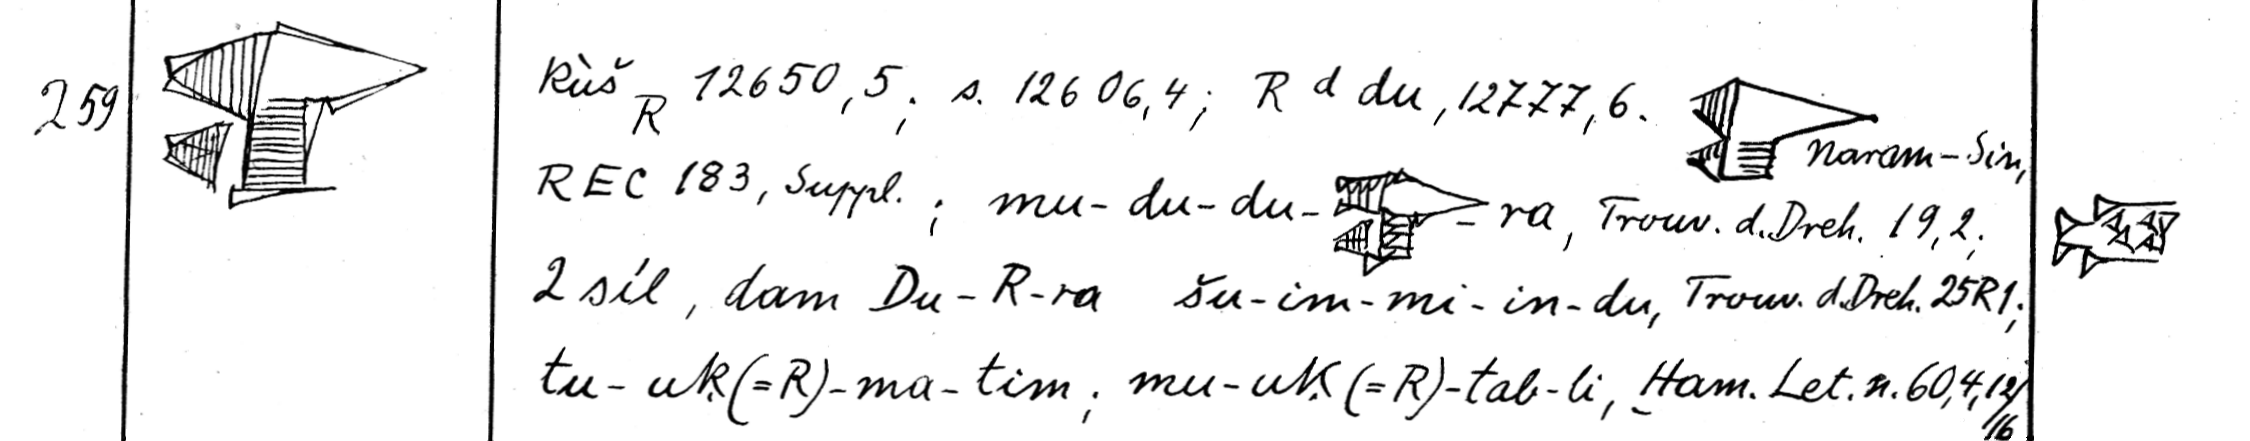 259
kùš R 12650,5; s. 12606,4; R d du, 12777,6. Naram-Sin,
REC 183, Suppl.; mu-du-du- -ra, Trouv. d. Dreh. 19,2;
2 síl, dam Du-R-ra šu-im-mi-in-du, Trouv. d. Dreh. 25R1;
tu-uḳ(=R)-ma-tim; mu-uḳ(=R)-tab-li, Ḫam. Let. n. 60,4,12/16